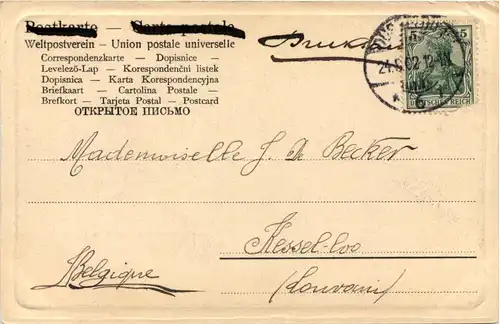 Postkarte — Carte postale
Weltpostverein - Union postale universelle
Correspondenzkarte - Dopisnice -
Levelező-Lap - Korespondenční listek
Dopisnica - Karta Korespondencyjna
Briefkaart - Cartolina Postale -
Brefkort - Tarjeta Postal - Postcard
ОТКРЫТОЕ ПИСЬМО
5
DEUTSCHES REICH
Mademoiselle J. De Becker
Kessel-loo
Belgique
(Louvain)